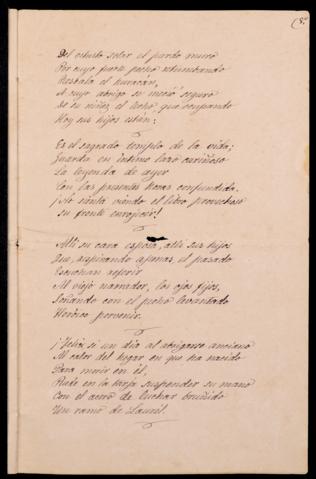 (8.
Del vetusto solar el pardo muro
Por cuyo fuerte pecho retumbando
Resbala el huracán,
A cuyo abrigo se meció seguro
De su niñez, el lecho que ocupando
Hoy sus hijos están;
Es el sagrado templo de la vida;
Guarda en íntimo lazo cariñoso
La leyenda de ayer
Con las presentes horas confundida.
¡No sienta viendo el libro
su frente enrojecer!
Allí su cara esposa, allí sus hijos
Que, respirando apenas, el pasado
Escuchan referir
Al viejo narrador, los ojos fijos,
Soñando con el pecho levantado
Heróico porvenir.
¡Feliz si un día al abrigarse anciano
Al calor del hogar en que ha nacido
Para morir en él,
Pude en la torja suspender su mano
Con el arma de luchar bruñido
Un ramo de Laurel.